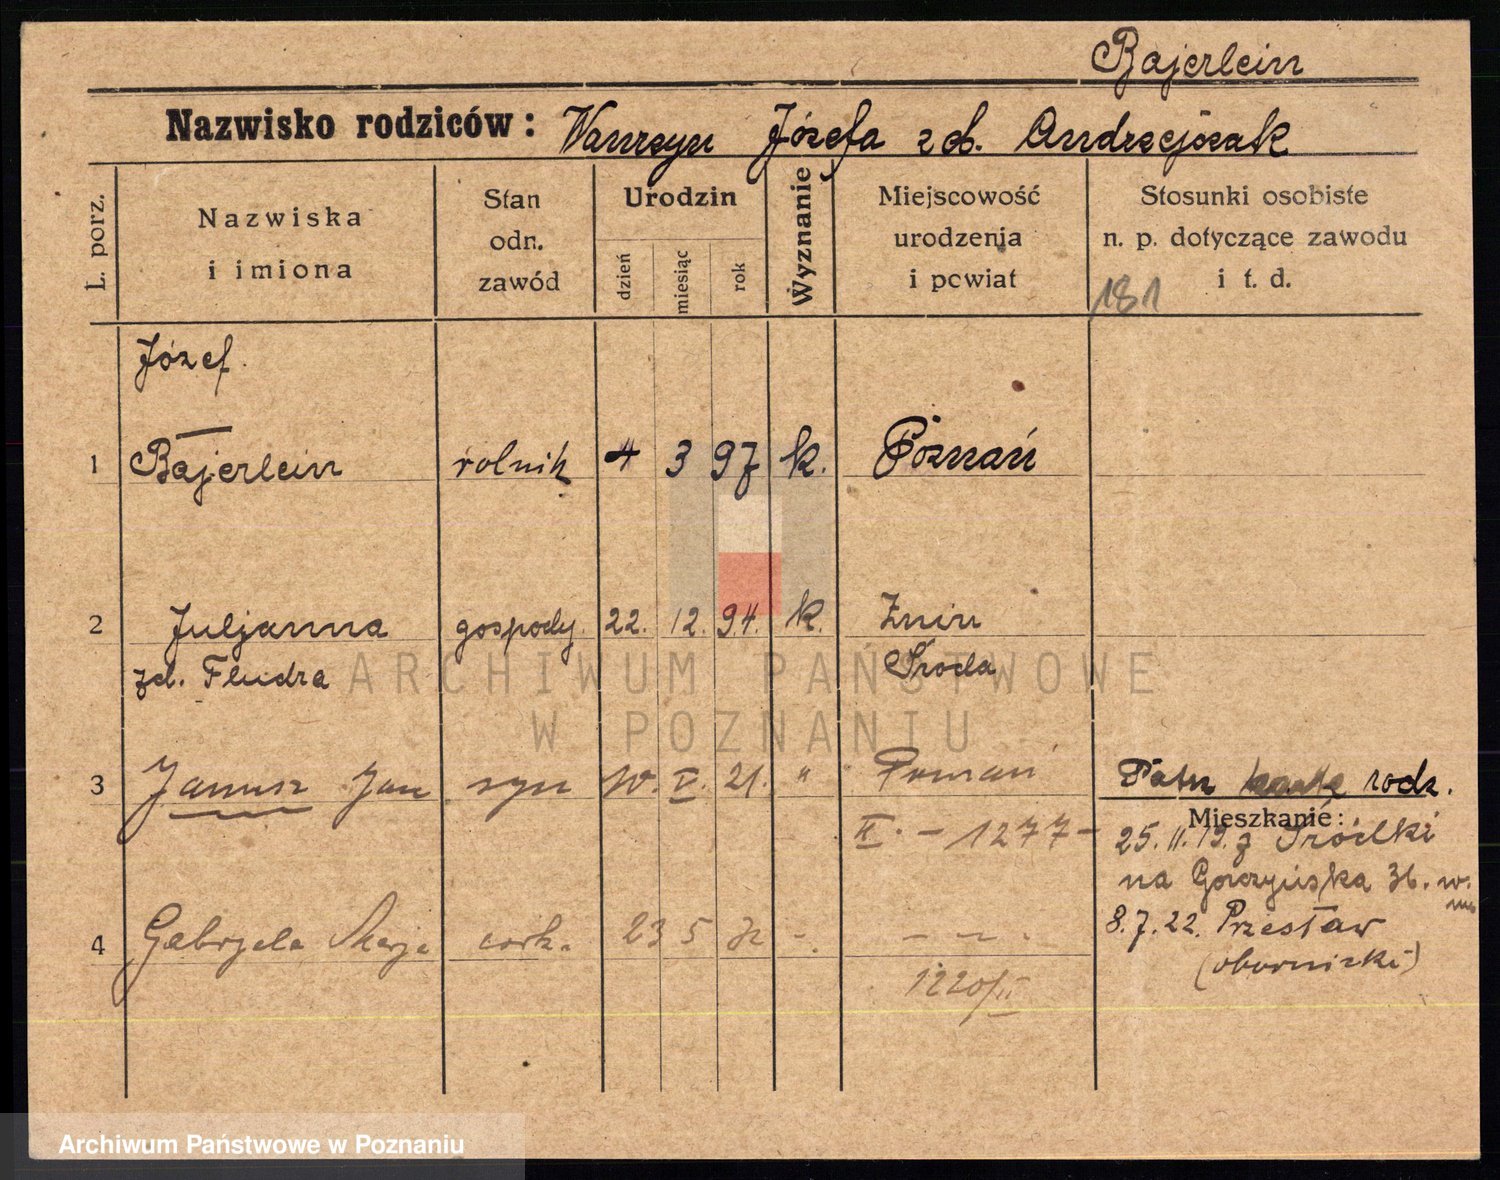 Bajerlein
Nazwisko rodziców: Józefa zd. Andrzejczak
L. porz.
Nazwiska i imiona
Stan odn. zawód
Urodzin
dzień
miesiąc
rok
Wyznanie
Miejscowość urodzenia i powiat
Stosunki osobiste n. p. dotyczące zawodu i t. d.
181
Józef.
1 Bajerlein rolnik 4 3 97 k. Poznań
2 Juljanna gospody. 22. 12. 94. k. Żnin
zd. Fludra Środa
3 Janusz Jan syn 10. V. 21. " Poznań rodz.
Mieszkanie:
II. - 1277 -
25. 11. 19. z
na Gorczyńska 36.
4 Gabryela córk. 23 5
8. 7. 22. Przesław
(obornicki)
1220/II
ARCHIWUM PAŃSTWOWE
W POZNANIU
Archiwum Państwowe w Poznaniu